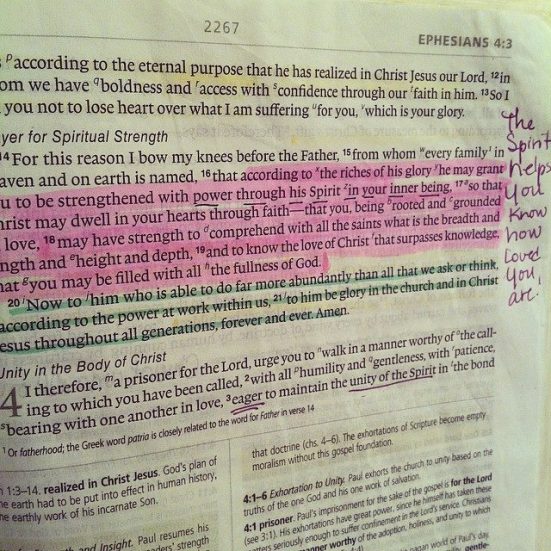 2267
EPHESIANS 4:3
p according to the eternal purpose that he has realized in Christ Jesus our Lord, 12 in
om we have q boldness and r access with s confidence through our t faith in him. 13 So I
you not to lose heart over what I am suffering u for you, v which is your glory.
yer for Spiritual Strength
14 For this reason I bow my knees before the Father, 15 from whom w every family 1 in
aven and on earth is named, 16 that according to x the riches of his glory y he may grant
u to be strengthened with power through his Spirit z in your inner being, 17 a so that
hrist may dwell in your hearts through faith—that you, being b rooted and c grounded
love, 18 may have strength to d comprehend with all the saints what is the breadth and
ngth and e height and depth, 19 and to know the love of Christ f that surpasses knowledge,
hat g you may be filled with all h the fullness of God.
20 i Now to j him who is able to do far more abundantly than all that we ask or think,
according to the power at work within us, 21 l to him be glory in the church and in Christ
esus throughout all generations, forever and ever. Amen.
Unity in the Body of Christ
4 I therefore, m a prisoner for the Lord, urge you to n walk in a manner worthy of o the call-
ing to which you have been called, 2 with all p humility and q gentleness, with r patience,
s bearing with one another in love, 3 eager to maintain the unity of the Spirit in t the bond
1 Or fatherhood; the Greek word patria is closely related to the word for Father in verse 14
The
Spirit
helps
you
know
how
loved
you
are.
n 1:3–14. realized in Christ Jesus. God's plan of
e earth had to be put into effect in human history,
he earthly work of his incarnate Son.
and Insight. Paul resumes his
ders' strength
that doctrine (chs. 4–6). The exhortations of Scripture become empty
moralism without this gospel foundation.
4:1–6 Exhortation to Unity. Paul exhorts the church to unity based on the
truths of the one God and his one work of salvation.
4:1 prisoner. Paul's imprisonment for the sake of the gospel is for the Lord
(see 3:1). His exhortations have great power, since he himself has taken these
tters seriously enough to suffer confinement in the Lord's service. Christians
manner worthy of the adoption, holiness, and unity to which
pagan world of Paul's day.
gentle-